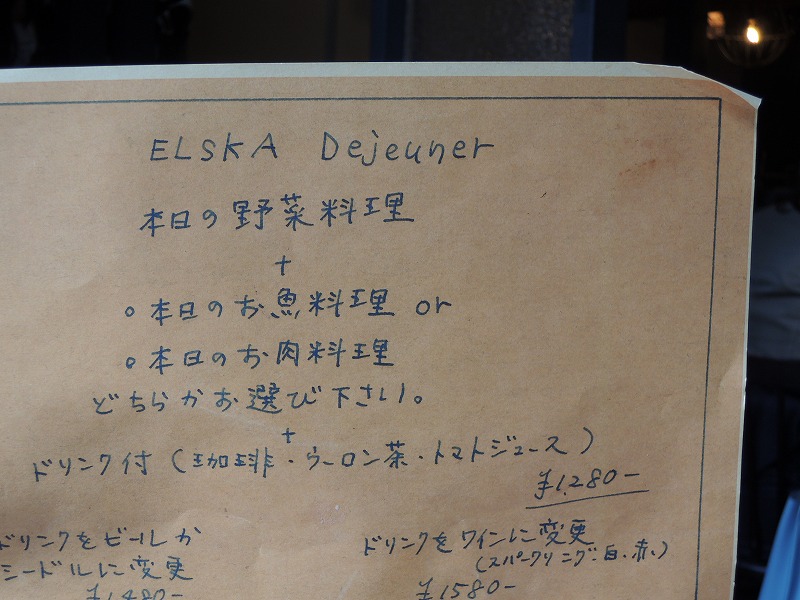 ELSKA Dejeuner
本日の野菜料理
+
○本日のお魚料理 or
○本日のお肉料理
どちらかお選び下さい。
+
ドリンク付(珈琲・ウーロン茶・トマトジュース)
¥1,280-
ドリンクをビールか
シードルに変更
¥1480-
ドリンクをワインに変更
(スパークリング・白・赤)
¥1580-